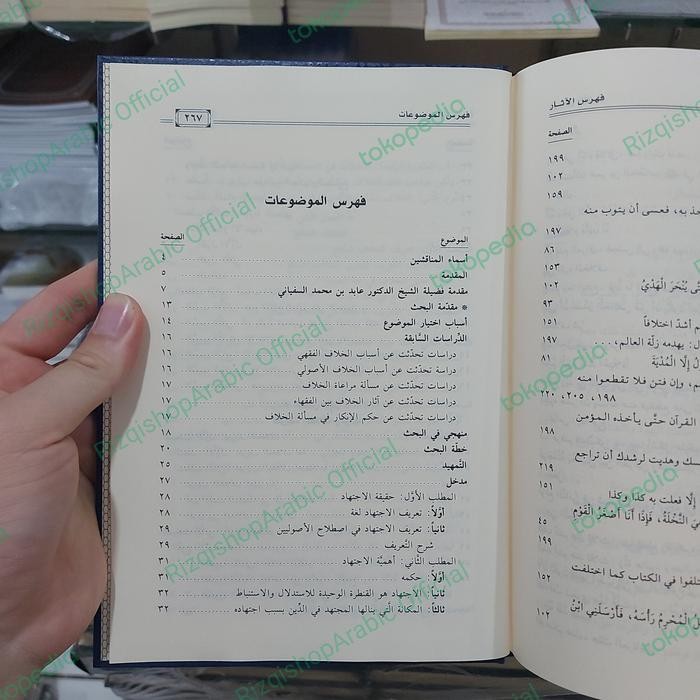 فهرس الموضوعات
٢٦٧
فهرس الموضوعات
الموضوع الصفحة
أسماء المناقشين ٤
المقدمة ٥
مقدمة فضيلة الشيخ الدكتور عابد بن محمد السفياني ٧
* مقدّمة البحث ١٣
أسباب اختيار الموضوع ١٤
الدِّراسات السَّابقة ١٦
دراسات تحدّثت عن أسباب الخلاف الفقهي ١٦
دراسة تحدّثت عن أسباب الخلاف الأصولي ١٦
دراسات تحدّثت عن مسألة مراعاة الخلاف ١٧
دراسات تحدّثت عن آثار الخلاف بين الفقهاء ١٧
دراسات تحدّثت عن حكم الإنكار في مسألة الخلاف
منهجي في البحث ١٨
خطّة البحث ٢٠
التَّمهيد ٢٥
مدخل ٢٧
المطلب الأوَّل: حقيقة الاجتهاد ٢٨
أوَّلاً: تعريف الاجتهاد لغة ٢٨
ثانياً: تعريف الاجتهاد في اصطلاح الأصوليين ٢٩
شرح التَّعريف ٢٩
المطلب الثَّاني: أهميَّة الاجتهاد ٣١
أوَّلاً: حكمه ٣١
ثانياً: الاجتهاد هو القنطرة الوحيدة للاستدلال والاستنباط ٣٢
ثالثاً: المكانة الَّتي ينالها المجتهد في الدِّين بسبب اجتهاده ٣٢
فهرس الآثار
الصفحة
١٩٩
١٠٢
١٥٩
به، فعسى أن يتوب منه
١٩٧
٨٦
١٥٣
يُنْحَرَ الْهَدْيُ ١٠٢
٩٣
أشدّ اختلافاً ١٥١
يهدمه زلّة العالم، ... ١٩٧
إِلَّا الْمُدْيَةَ ٨١
وإن فتن فلا تقطعوا منه
١٩٨، ٢٠٥، ٢٢٠
القرآن حتَّى يأخذه المؤمن
١٩٨
وهديت لرشدك أن تراجع
٢١٩
إلَّا فعلت به كذا وكذا ١٥١
النَّخْلَةُ، فَإِذَا أَنَا أَصْغَرُ الْقَوْمِ
٤٥
١٩٩
في الكتاب كما اختلفت
١٥٢
الْمُحْرِمُ رَأْسَهُ، فَأَرْسَلَنِي ابْنُ
١٠٢
RizqishopArabic Official
tokopedia